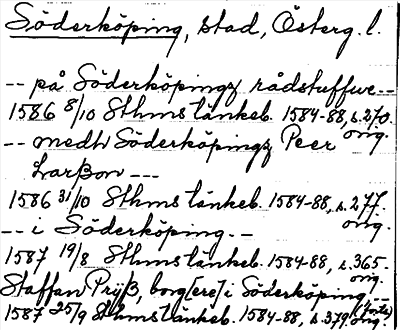 Söderköping, stad, Österg. l.
-- på Söderköpingz rådstuffwe --
1586 8/10 Sthms tänkeb. 1584-88, s. 270.
orig.
-- medh Söderköpingz Peer
Larßon ---
1586 31/10 Sthms tänkeb. 1584-88, s. 277.
orig.
-- i Söderköping. --
1587 19/8 Sthms tänkeb. 1584-88, s. 365.
orig.
Staffan Prijß, borg[ere] i Söderköping --
1587 25/9 Sthms tänkeb. 1584-88, s. 379 (forts) orig.